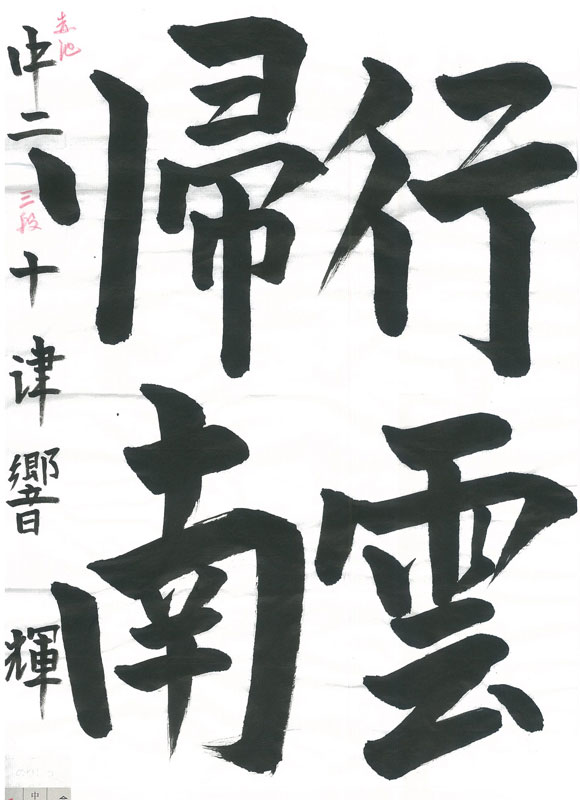 行雲
帰南
赤池
中二
三段
十津響輝
中